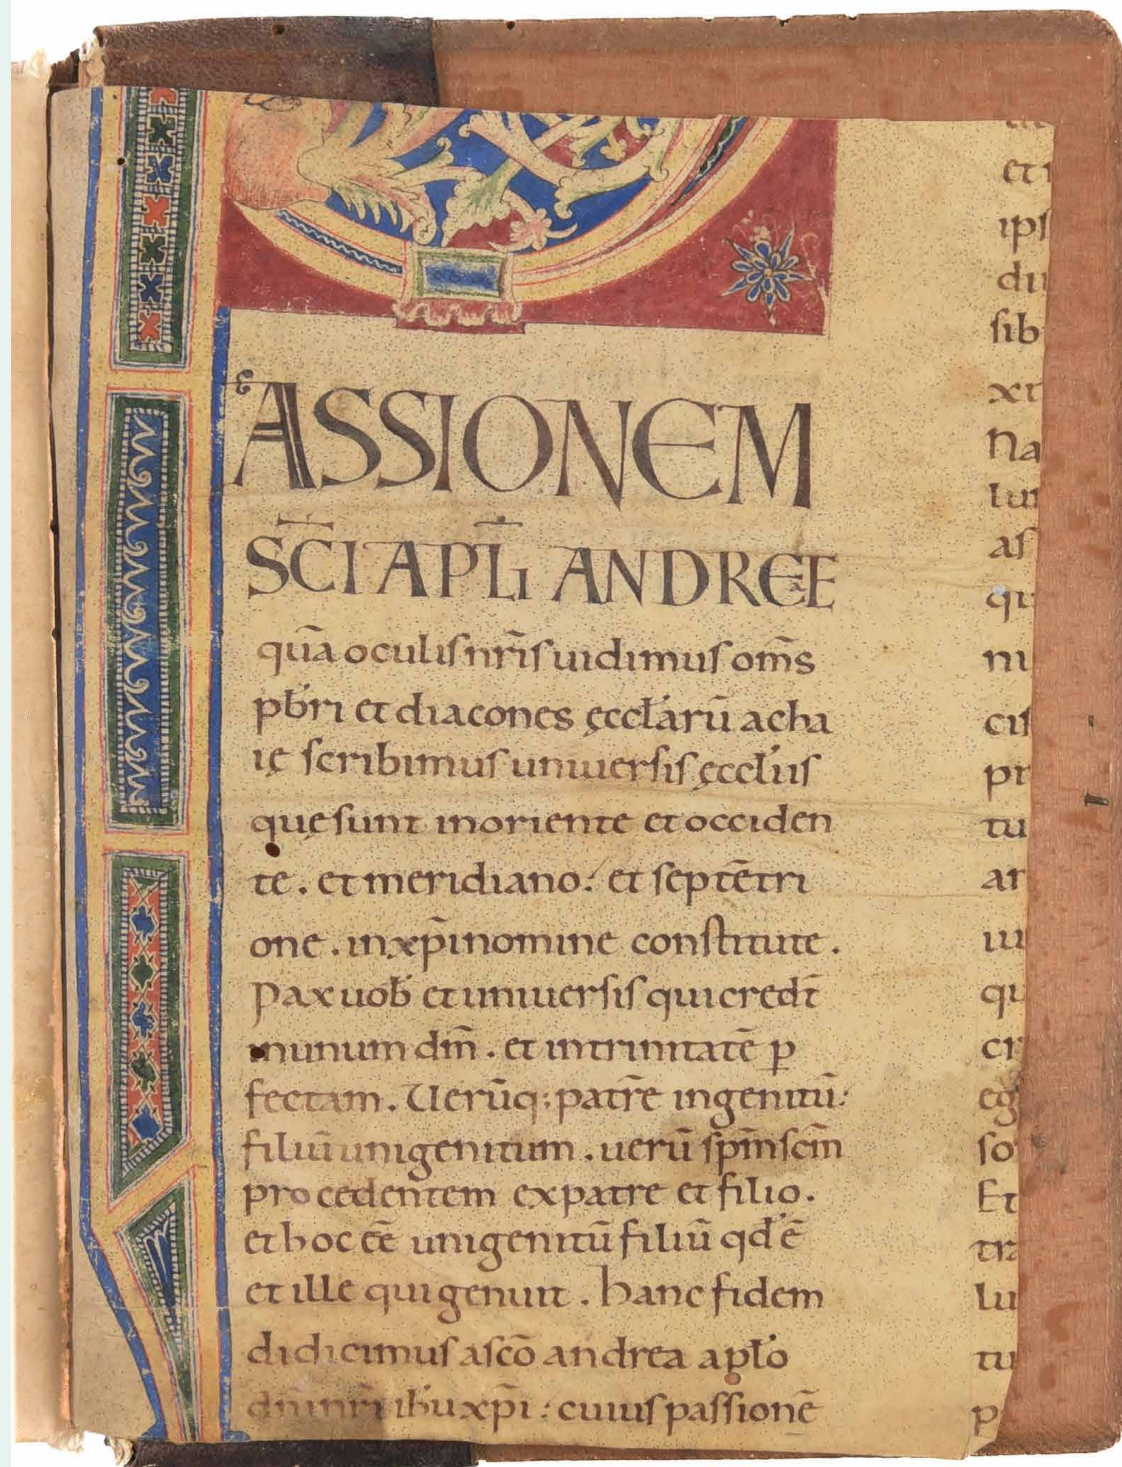 ASSIONEM
SC̅I APL̅I ANDREE
qua̅ oculis nr̅is uidimus om̅s
pb̅ri et diacones ęccl̅aru̅ acha
ię scribimus uniuersis ęccl̅iis
quę sunt in oriente et occiden
te . et meridiano : et septe̅tri
one . in xp̅i nomine constitute .
Pax uob̅ et uniuersis qui credt̅
in unum dm̅ . et in trinitate̅ p̲
fectam . Ueru̅q; patre̅ ingenitu̅ :
filiu̅ unigenitum . ueru̅ sp̅m sc̅m
procedentem ex patre et filio .
et hoc ee̅ unigenitu̅ filiu̅ qd̅ e̅
et ille qui genuit . hanc fidem
didicimus a sc̅o andrea apl̅o
dn̅i nr̅i ih̅u xp̅i : cuius passione̅
et
ips
du
sib
xi
Na
lus
as
qu
ni
cis
pr
tu
ar
iu
qu
cr
eg
so
Et
tr
lu
tu
p